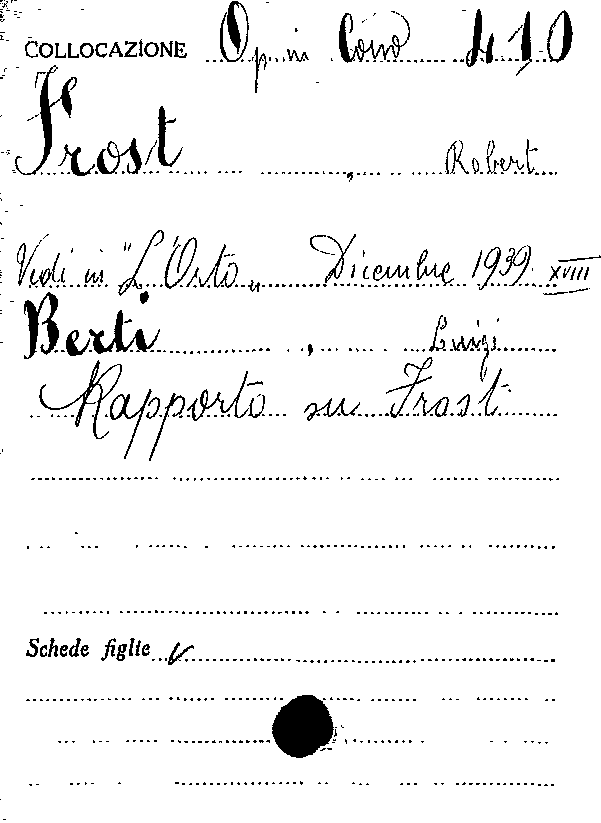 COLLOCAZIONE Op. in Cons 410
Frost, Robert
Vedi in "L'Orto" Dicembre 1939 XVIII
Berti, Luigi
Rapporto su Frost
Schede figlie